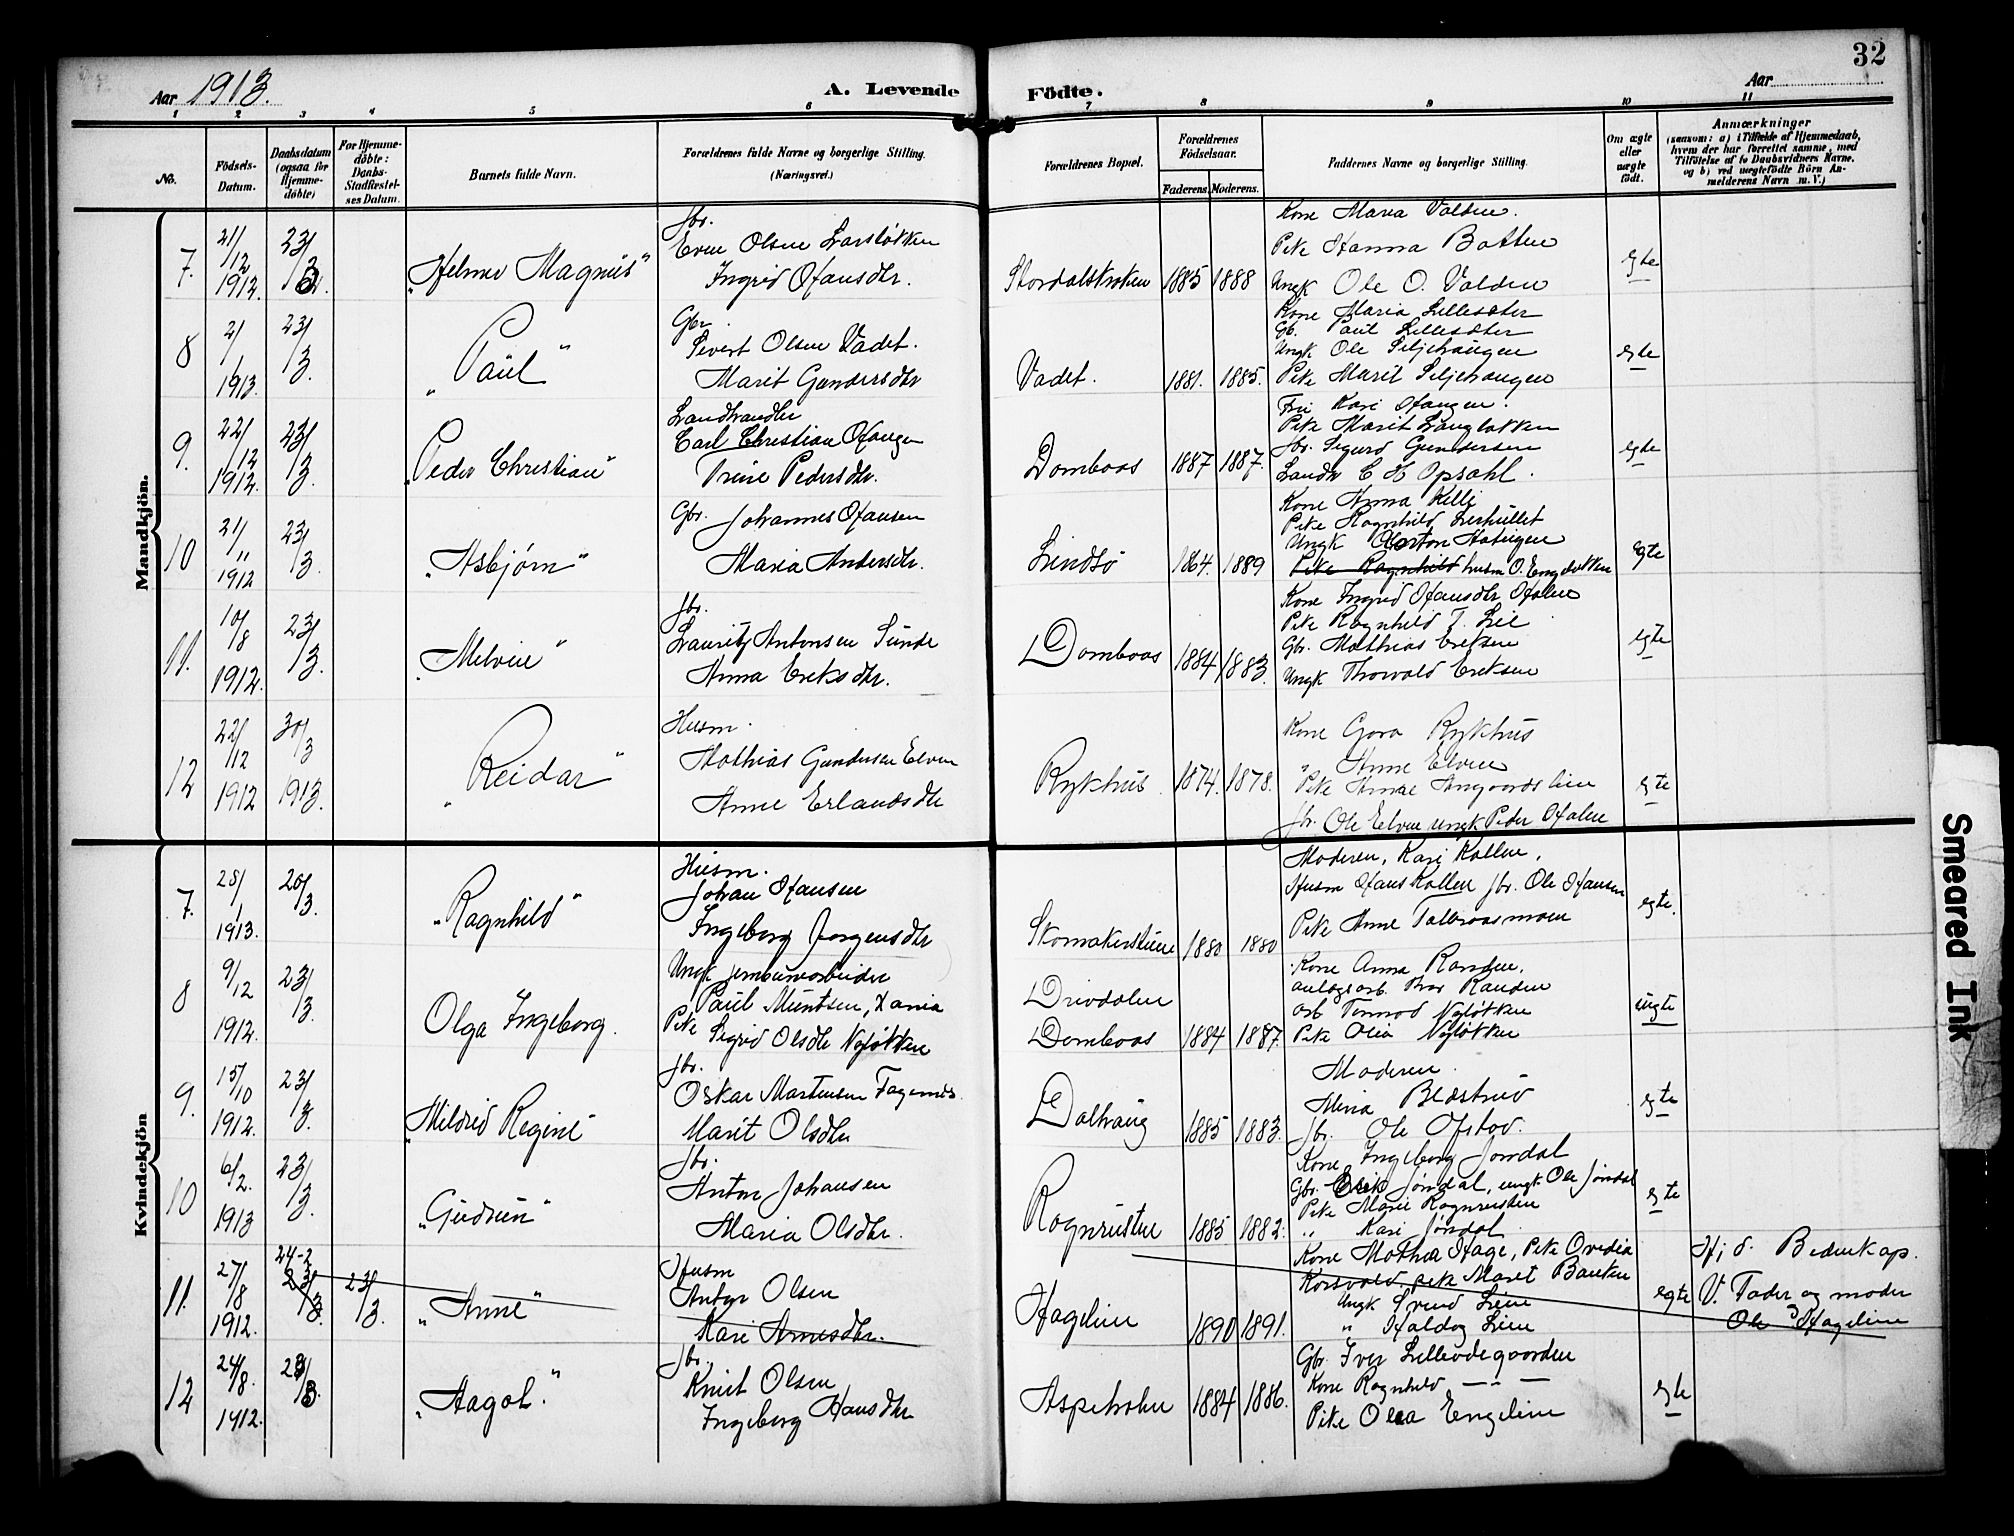 32
Aar 1913.
A. Levende Födte.
Aar
1 2 3 4 5 6 7 8 9 10 11
No.
Födsels-Datum.
Daabsdatum (ogsaa for Hjemme-döbte)
For Hjemme-döbte: Daabs-Stadfæstel-ses Datum.
Barnets fulde Navn.
Forældrenes fulde Navne og borgerlige Stilling. (Næringsvei.)
Forældrenes Bopæl.
Forældrenes Födselsaar.
Faderens. Moderens.
Faddernes Navne og borgerlige Stilling.
Om ægte eller uægte födt.
Anmærkninger
(saasom: a) i Tilfælde af Hjemmedaab, hvem der har forrettet samme, med Tilföielse af to Daabsvidners Navne. og b) ved uægtefödte Börn An-melderens Navn m. V.)
Mandkjön.
7. 21/12 1912. 23/3
"Helmer Magnus"
Jbr.
Even Olsen Larsløkken
Ingrid Hansdtr.
Stordalskroken 1885 1888
Kone Maria Valden.
Pike Hanna Batten
Ungk Ole O. Valden
egte
8 2/1 1913. 23/3.
"Paul"
Gbr.
Sivert Olsen Vadet.
Marit Gundersdtr
Vadet. 1881. 1885.
Kone Maria Lillesæter
Gb. Paul Lillesæter
Ungk Ole Seljehaugen
Pike Marit Seljehaugen
egte
9. 22/12 1912. 23/3.
"Peder Christian"
Landhandler
Carl Christian Haugen
Trine Pedersdtr.
Domboas 1887 1887.
Fru Kari Haugen.
Pike Marit Langløkken
Jbr. Sigurd Gundersen
Landh C H Opsahl.
egte
10 21/11 1912 23/3.
"Asbjørn"
Gbr. Johannes Hansen
Maria Andersdtr.
Lindsø 1864. 1889
Kone Anna Killi
Pike Ragnhild
Ungk
Pike Ragnhild husm O. Engeløkken
egte
11. 10/8 1912. 23/3.
"Melvin"
Jbr.
Lauritz Antonsen Sunde
Anna Eriksdtr.
Domboas 1884 1883.
Kone Ingrid Hansdtr Halen
Pike Ragnhild T. Lie
Gbr. Mathias Eriksen
Ungk Thorvald Eriksen
egte
12 22/12 1912 30/3 1913.
"Reidar"
Husm.
Mathias Gundersen Elven
Anne Erlandsdtr
Rykhus. 1874. 1878.
Kone Gora Rykhus
" Anne Elven
Pike Anne Angaardslien
Jbr. Ole Elven ungk Peder Halen
egte
Kvindekjön
7. 28/1 1913. 20/3.
"Ragnhild"
Husm.
Johan Hansen
Ingeborg Jørgensdtr
Skomakerstuen 1880 1880
Moderen, Kari Kollen.
Husm Hans Kollen Jbr. Ole Hansen
Pike Anne Talleraasmoen
egte.
8 9/12 1912. 23/3.
Olga Ingeborg.
Ungk jernbanearbeider
Paul Muntsen, Xania
Pike Sigrid Olsdtr Nyløkken
Drivdalen
Domboas 1884 1887.
Kone Anna Randen.
anlegsarb. Randen
arb Tormod Nyløkken
Pike Olia Nyløkken
uegte
9. 15/10 1912. 23/3.
"Mildrid Regine"
Jbr.
Oskar Martensen Fagernes.
Marit Olsdtr
Dalhaug 1885 1883.
Moderen
Mina Blæstrud
Jbr. Ole Ofstad.
egte
10 6/2. 1913 23/3.
"Gudrun"
Jbr.
Anton Johansen
Maria Olsdtr.
Rognrusten 1885 1882.
Kone Ingeborg Jøndal
Gbr. Erik Jøndal, ungk Ole Jøndal
Pike Marie Rognrusten
" Kari Jøndal
egte
11. 27/8 1912. 24-2 23/3. 23/3.
"Anne"
Husm
Anton Olsen
Kari Arnesdtr.
Hagelien 1890 1891.
Kone Mathea Hage, Pike Ovedia
Korsvold, pike Marit Banken
Ungk Svend Lien
" Haldog Lien
egte
Hj d. Bedrekap.
V. Fader og moder
Ole Hagelien
12 24/8. 1912. 23/3.
"Aagot."
Jbr.
Knut Olsen
Ingeborg Hansdtr
Aspeholen 1884 1886.
Gbr. Iver Lillevdegaarden
Kone Ragnhild — " —
Pike Olea Engelien
egte
Smeared Ink